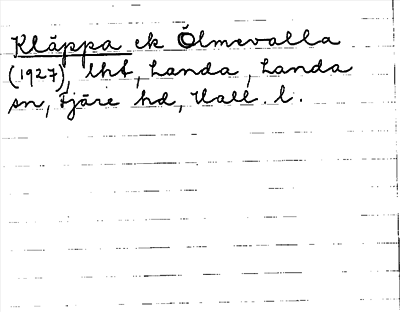 Kläppa ek Ölmevalla
(1927), lht, Landa, Landa
sn, Fjäre hd, Hall. l.